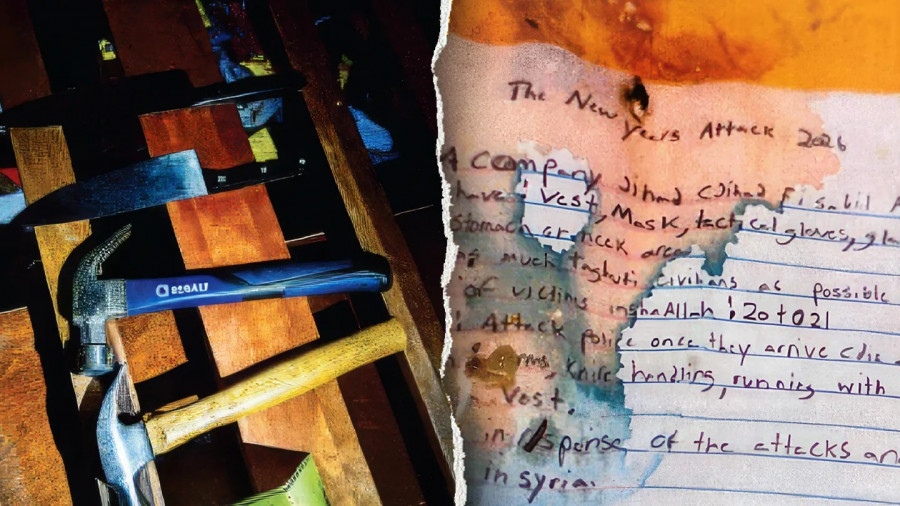 The New
Years Attack 2026
A company Jihad Fisabil
have 1 Vest, Mask, tactical gloves,
stomach or neck area
much taghuti civilians as possible
of victims inshaAllah: 20 to 21
Attack police once they arrive
knife handling, running with
Vest.
in of the attacks
in syria.